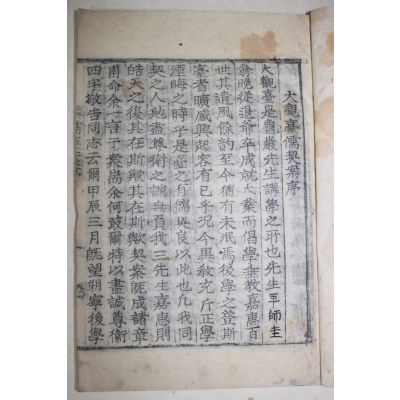 大觀臺儒契案序
大觀臺是龜巖先生講學之所也先生早師圭
翁晩從退爺卒成就大業而倡學垂敎嘉惠百
世其遺風餘韵至今猶有未泯焉後學之登斯
臺者曠感興起容有已乎況今異敎充斥正學
湮晦之時乎是臺之有儒契良以此也凡我同
契之人勉盡尊衛之誠無負我三先生嘉惠則
皓天之復其在斯歟其在斯歟契案旣成諸章
甫命余一言于案耑余何敢爾特以盡誠尊衛
四字敬告同志云爾甲辰三月旣望朔寧後學